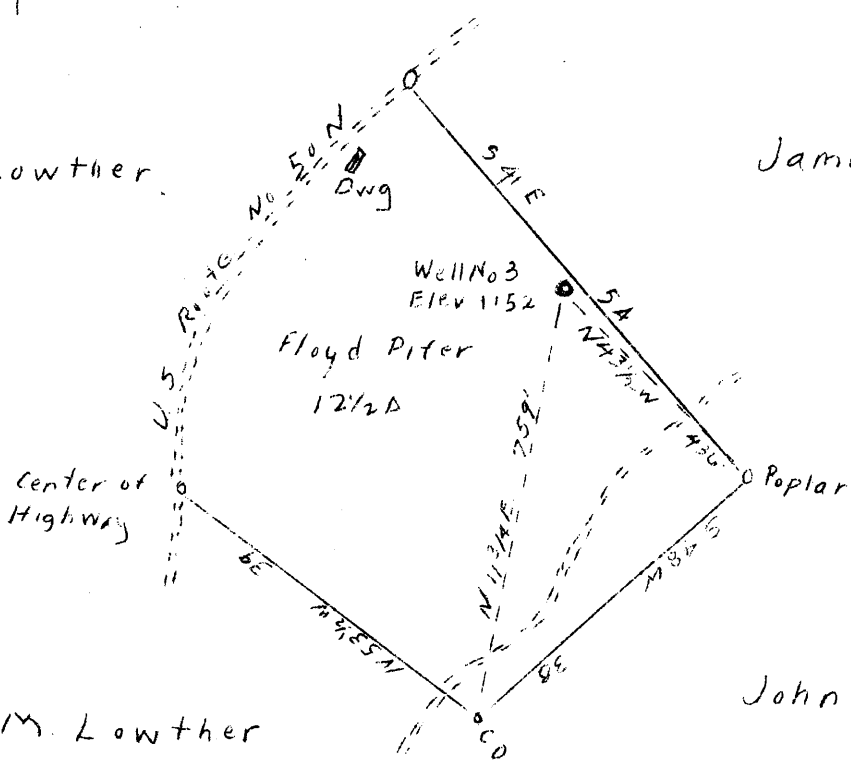 Lowther
U S Route No 50 N
Dwg
S 41 E
54
Jam
Well No 3
Elev 1152
Floyd Pifer
12 1/2 A
N 43 1/2 W
436
759'
N 11 3/4 E
Center of
Highway
Poplar
S 48 W
38
39
N 53 1/2 W
C O
John
M. Lowther